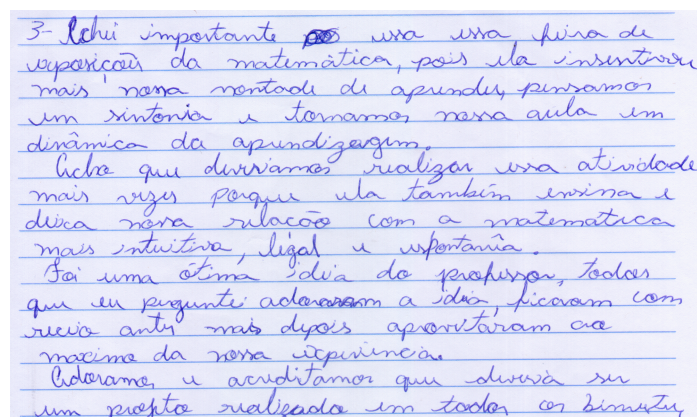 3- Achei importante essa essa feira de
exposição da matemática, pois ela insentivou
mais nossa vontade de aprender, pensamos
em sintonia e tornamos nossa aula em
dinâmica da aprendizagem.
Acho que deveriamos realizar essa atividade
mais vezes porque ela também ensina e
deixa nossa relacão com a matemática
mais intuitiva, legal e espontania.
Foi uma ótima idia do professor, todos
que eu pergunte adoraram a idia, ficaram com
receio antes mais depois aproveitaram ao
maximo da nossa experiencia.
Adoramos e acreditamos que deveria ser
um projeto realizado em todos os bimestres,